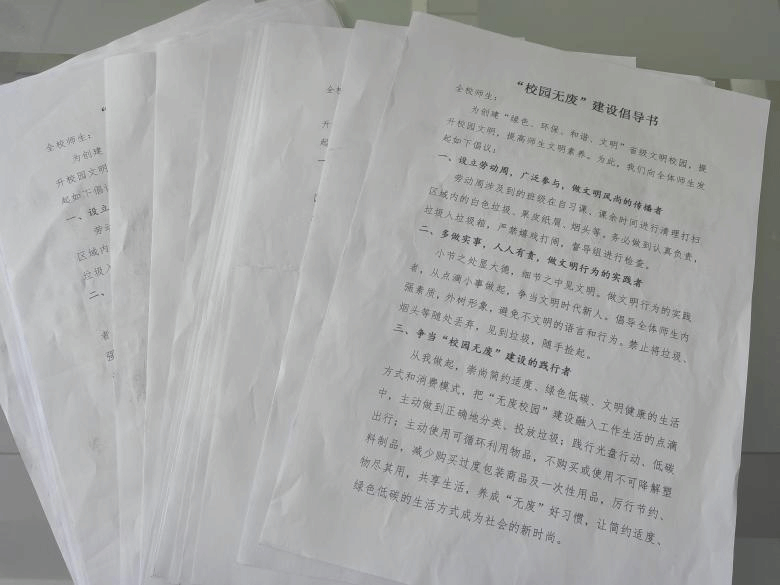 “校园无废”建设倡导书
全校师生：
为创建“绿色、环保、和谐、文明”省级文明校园，提
升校园文明，提高师生文明素养。为此，我们向全体师生发
起如下倡议：
一、设立劳动周，广泛参与，做文明风尚的传播者
劳动周涉及到的班级在自习课、课余时间进行清理打扫
区域内的白色垃圾、果皮纸屑、烟头等。务必做到认真负责，
垃圾入垃圾箱，严禁嬉戏打闹，督导组进行检查。
二、多做实事，人人有责，做文明行为的实践者
小节之处显大德，细节之中见文明。做文明行为的实践
者，从点滴小事做起，争当文明时代新人。倡导全体师生内
强素质，外树形象，避免不文明的语言和行为。禁止将垃圾、
烟头等随处丢弃，见到垃圾，随手捡起。
三、争当“校园无废”建设的践行者
从我做起，崇尚简约适度、绿色低碳、文明健康的生活
方式和消费模式，把“无废校园”建设融入工作生活的点滴
中，主动做到正确地分类、投放垃圾；践行光盘行动、低碳
出行；主动使用可循环利用物品，不购买或使用不可降解塑
料制品，减少购买过度包装商品及一次性用品，厉行节约、
物尽其用，共享生活，养成“无废”好习惯，让简约适度、
绿色低碳的生活方式成为社会的新时尚。
全校师生：
为创建
升校园文明
起如下倡议：
一、设立
劳动
区域内
垃圾入
二、
者
强
全校
升
起